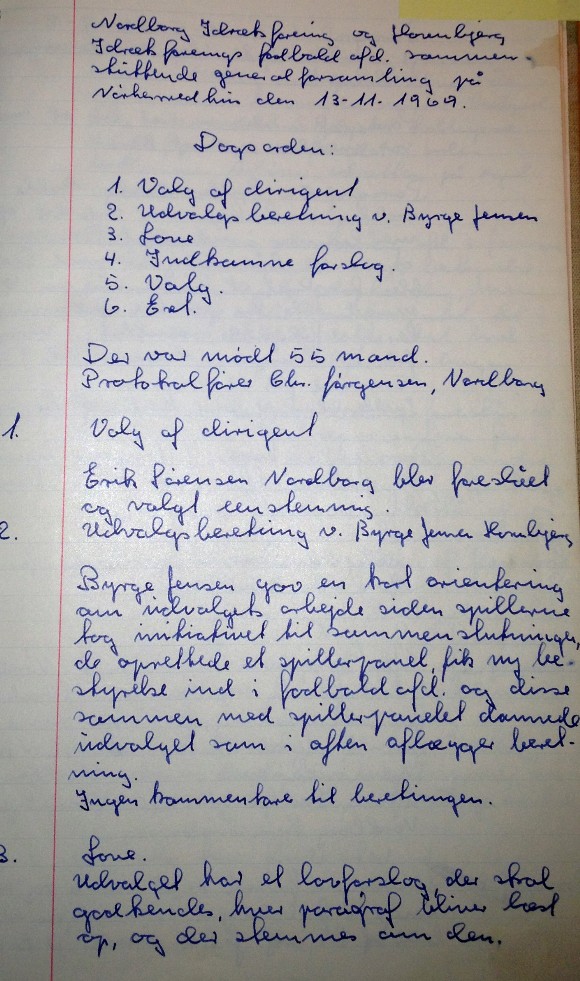 Nordborg Idrætsforening og Havnbjerg
Idrætsforenings fodbold afd. sammen-
sluttende generalforsamling på
Nørherredhus den 13-11-1969.
Dagsorden:
1. Valg af dirigent
2. Udvalgsberetning v. Byrge Jensen
3. Love
4. Indkomne forslag.
5. Valg.
6. Evt.
Der var mødt 55 mand.
Protokolfører Chr. Jørgensen, Nordborg
1. Valg af dirigent
Erik Sørensen Nordborg blev foreslået
og valgt eenstemmig.
2. Udvalgsberetning v. Byrge Jensen Havnbjerg
Byrge Jensen gav en kort orientering
om udvalgets arbejde siden spillerne
tog initiativet til sammenslutningen,
de oprettede et spillerpanel, fik ny be-
styrelse ind i fodboldafd. og disse
sammen med spillerpanelet dannede
udvalget som i aften aflægger beret-
ning.
Ingen kommentarer til beretningen.
3. Love.
Udvalget har et lovforslag, der skal
godkendes, hver paragraf bliver læst
op, og der stemmes om den.